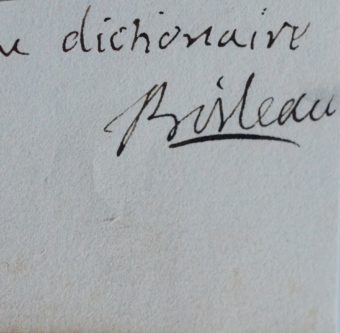 dictionaire
Boileau